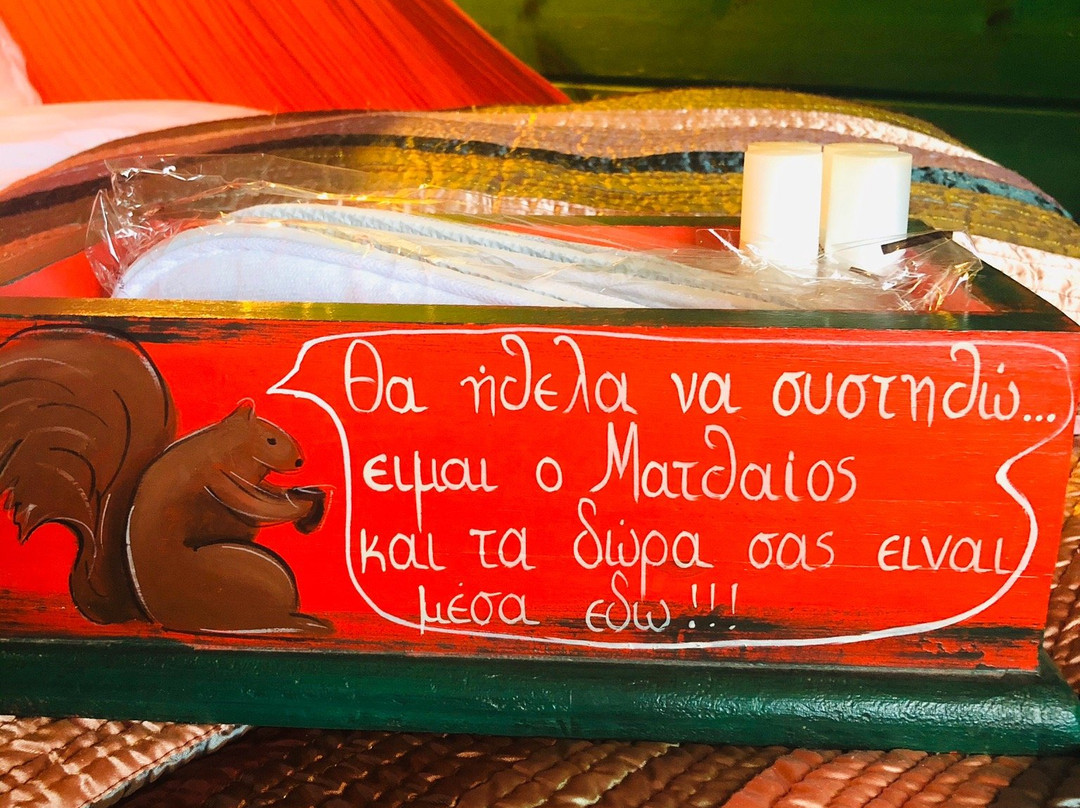 θα ήθελα να συστηθώ...
ειμαι ο Ματθαίος
και τα δώρα σας ειναι
μέσα εδω!!!